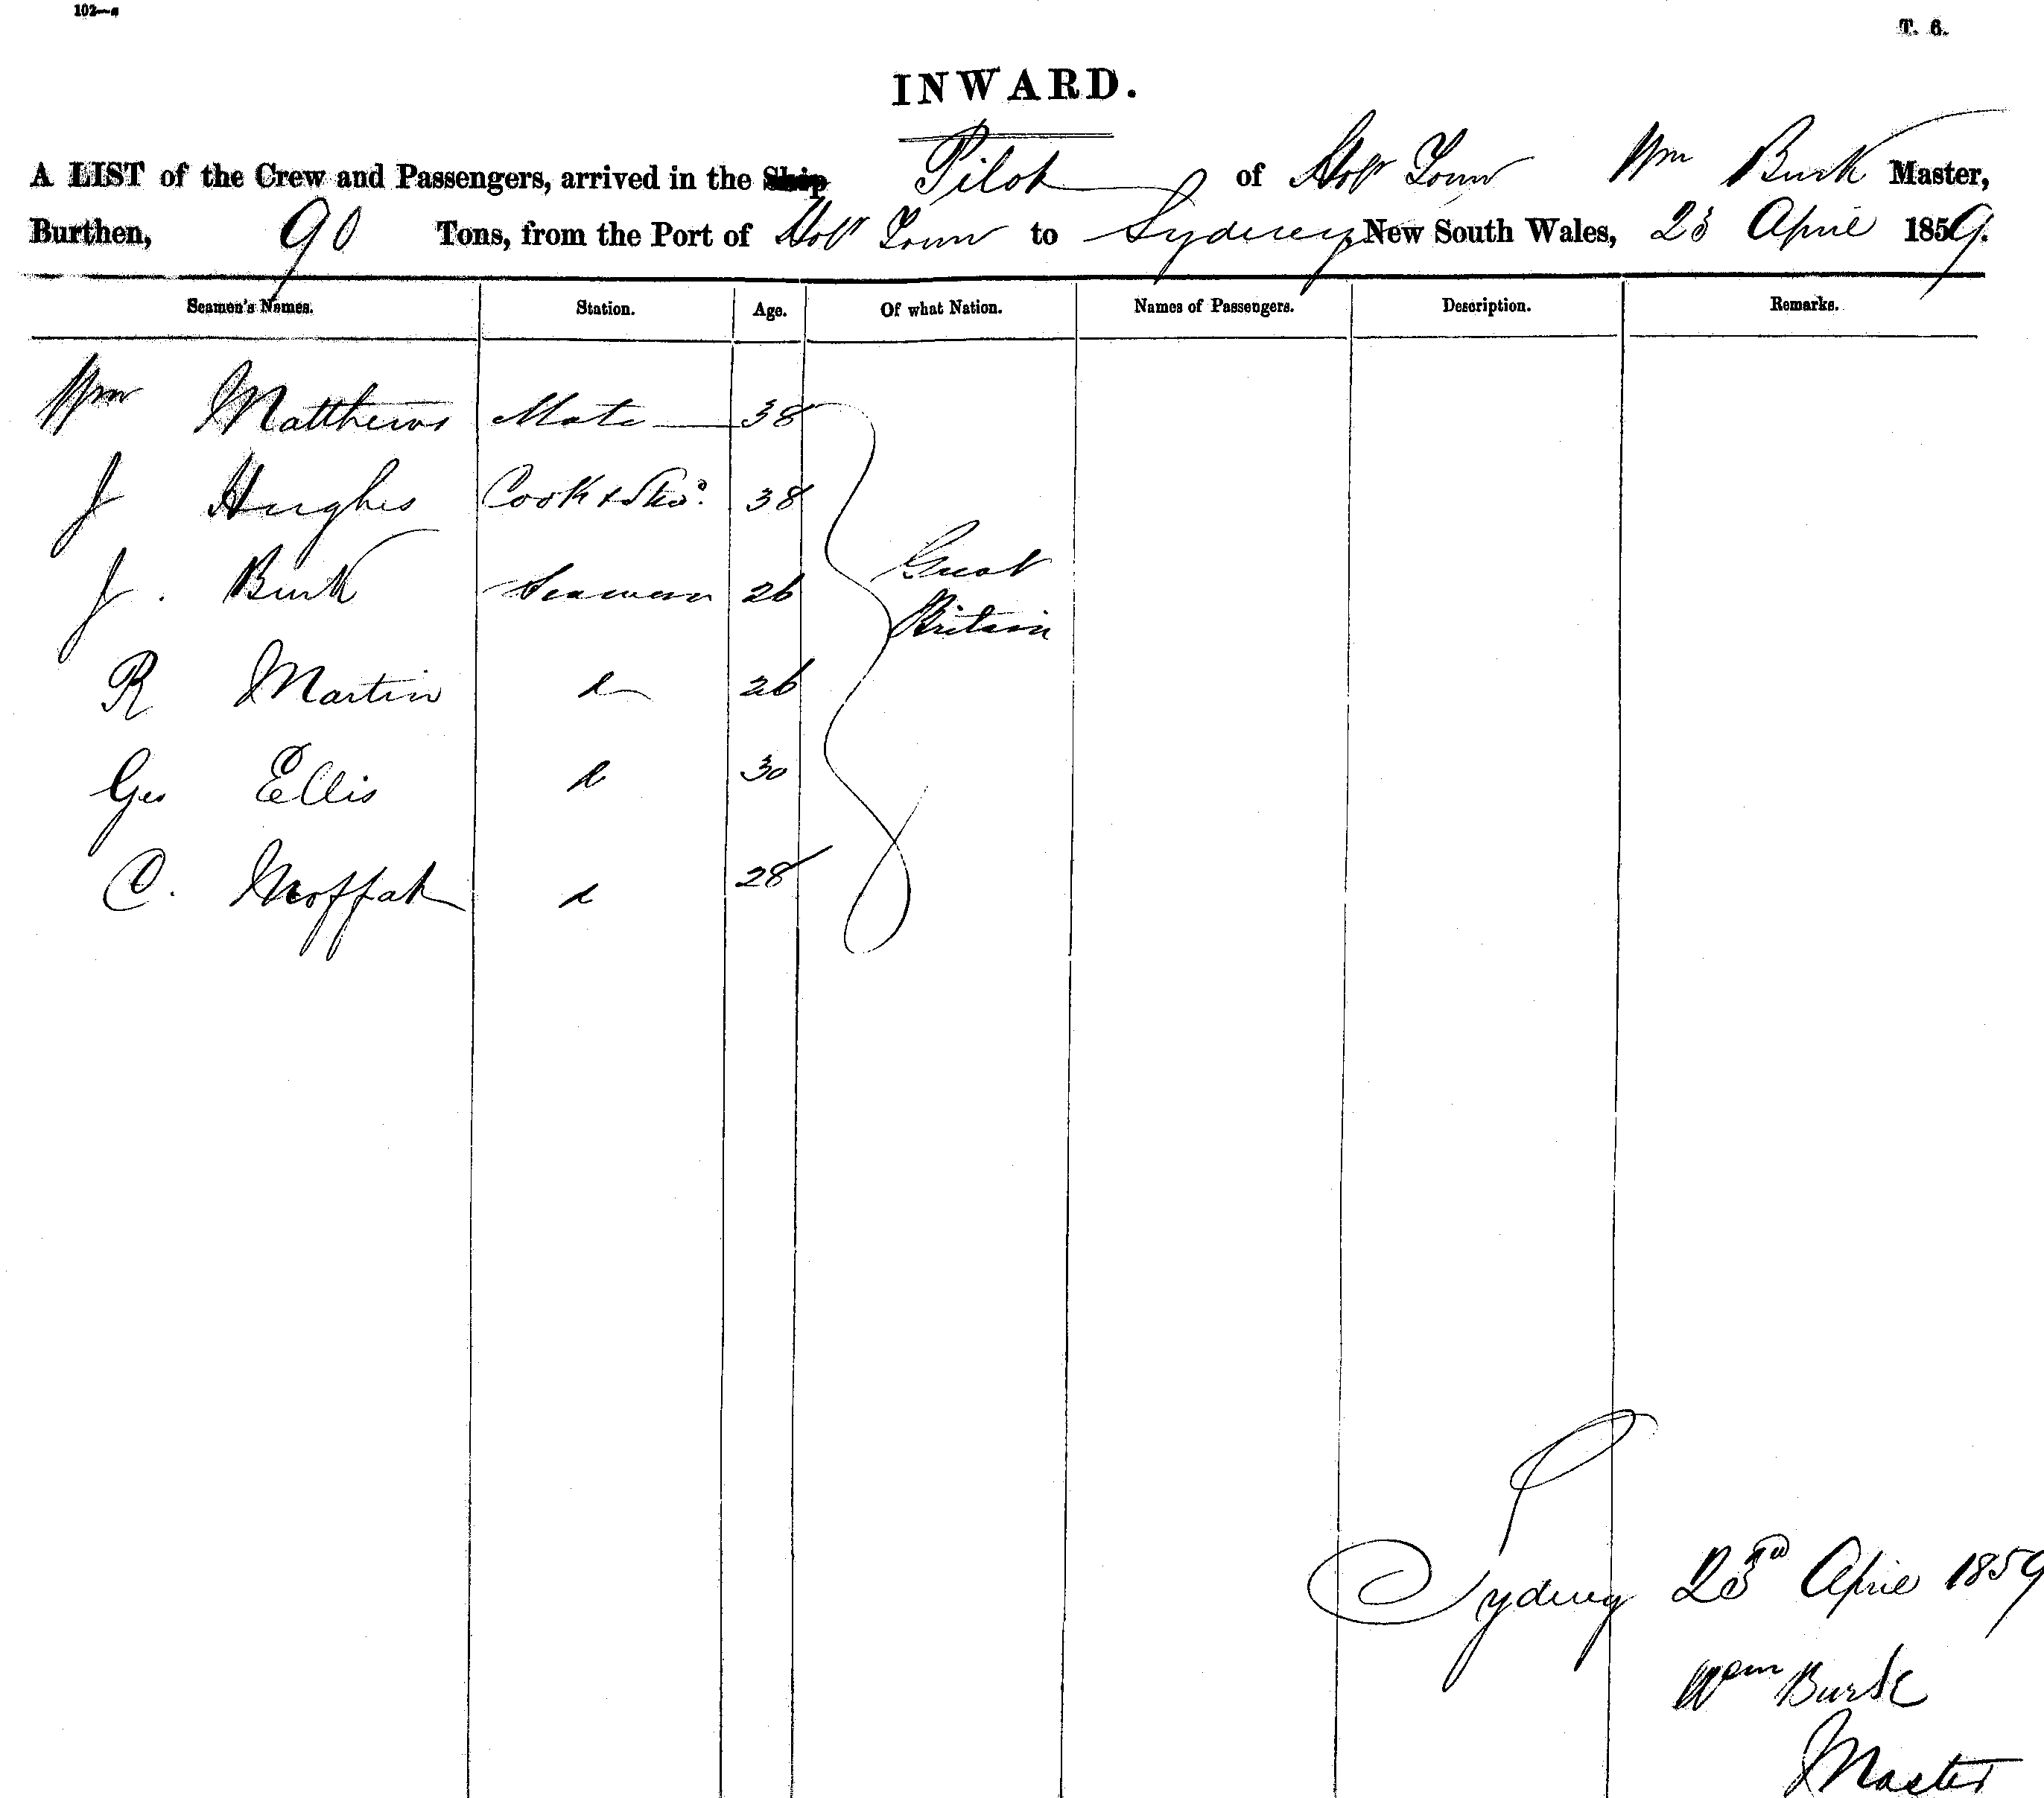 102—a
T. 6.
INWARD.
A LIST of the Crew and Passengers, arrived in the Ship Pilot of Hobt Town Wm Burk Master,
Burthen, 90 Tons, from the Port of Hobt Town to Sydney New South Wales, 23 April 1859.
Seamen's Names. Station. Age. Of what Nation. Names of Passengers. Description. Remarks.
Wm Matthews Mate 38
J Hughes Cook & Stwd. 38
J. Burk Seaman 26
Great Britain
R Martin d 26
Geo Ellis d 30
C. Moffat d 28
Sydney 23rd April 1859
Wm Burk
Master